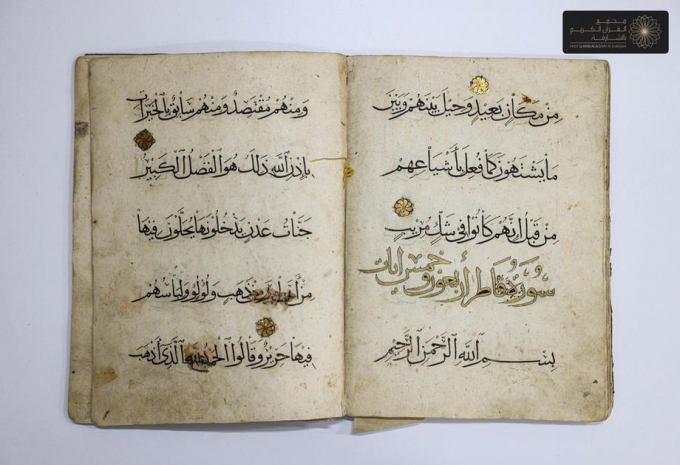 مجمع
القرآن الكريم
بالشارقة
مِنْ مَكَانٍ بَعِيدٍ وَحِيلَ بَيْنَهُمْ وَبَيْنَ
مَا يَشْتَهُونَ كَمَا فُعِلَ بِأَشْيَاعِهِمْ
مِنْ قَبْلُ إِنَّهُمْ كَانُوا فِي شَكٍّ مُرِيبٍ
سورة فاطر أربعون وخمس آيات
بِسْمِ ٱللَّهِ ٱلرَّحْمَنِ ٱلرَّحِيمِ
وَمِنْهُمْ مُقْتَصِدٌ وَمِنْهُمْ سَابِقٌ بِالْخَيْرَاتِ
بِإِذْنِ ٱللَّهِ ذَلِكَ هُوَ ٱلْفَضْلُ ٱلْكَبِيرُ
جَنَّاتُ عَدْنٍ يَدْخُلُونَهَا يُحَلَّوْنَ فِيهَا
مِنْ ذَهَبٍ وَلُؤْلُؤًا وَلِبَاسُهُمْ
فِيهَا حَرِيرٌ وَقَالُوا ٱلْحَمْدُ لِلَّهِ ٱلَّذِي أَذْهَبَ